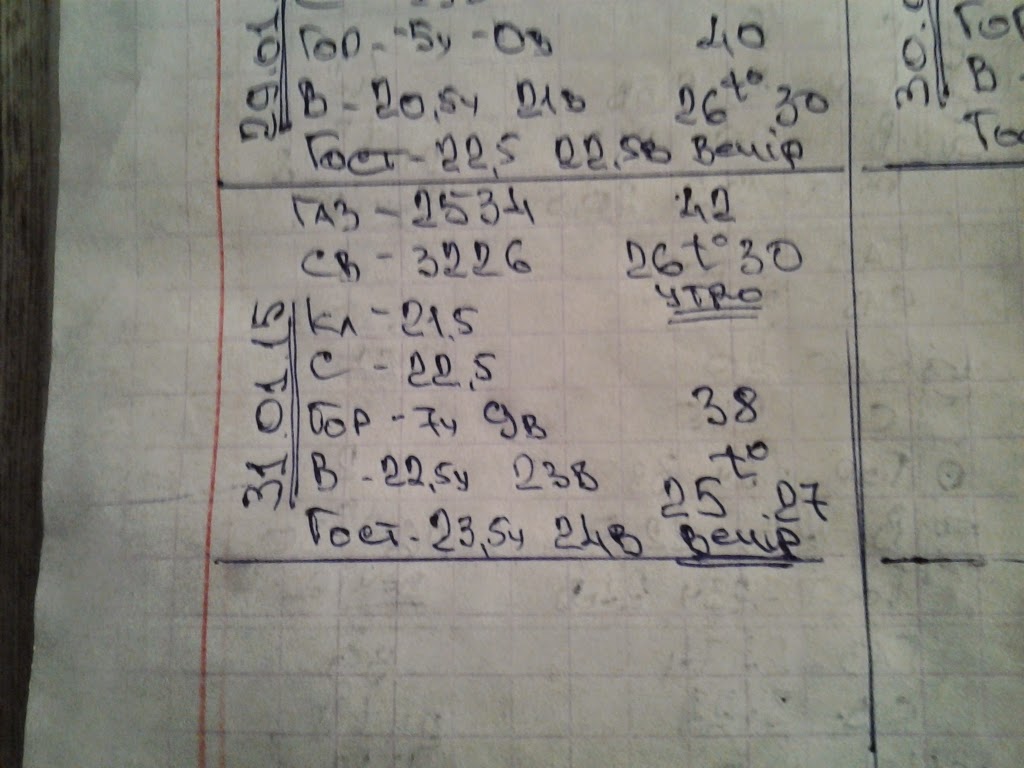 29.01
Гор - -5у -0в 40
В - 20,5у 21в 26 t° 30
Гост - 22,5 22,5в Вечір
ГАЗ - 2534 42
СВ - 3226 26 t° 30
УТРО
31.01.15
Кл - 21,5
С - 22,5
Гор - 7у 9в 38
В - 22,5у 23в 25 t° 27
Гост - 23,5у 24в Вечір
30.
Гор
В -
Гос